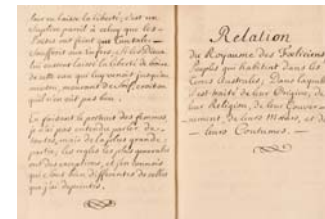 leur en laisse la liberté; c'est un
suplice pareil à celuy que les
Poetes ont feint que Tantale
Souffroit aux Enfers, et les Dieux
luy avoient laissé la liberté de boire
de cette eau qui luy venoit jusqu'au
menton, mourant de soif, croit on
qu'il n'en eut pas bu.
En faisant le portrait des femmes
je n'ai pas entendu parler de
toutes, mais de la plus grande
partie; les regles les plus generales
ont des exceptions, et j'en connois
qui sont bien differentes de celles
que j'ai depeintes.
Relation
du Royaume des Féliciens,
Peuples qui habitent dans les
Terres Australes; Dans laquelle
il est traité de leur Origine, de
leur Religion, de leur Gouver-
nement, de leurs Mœurs, et de
leurs Coutumes.